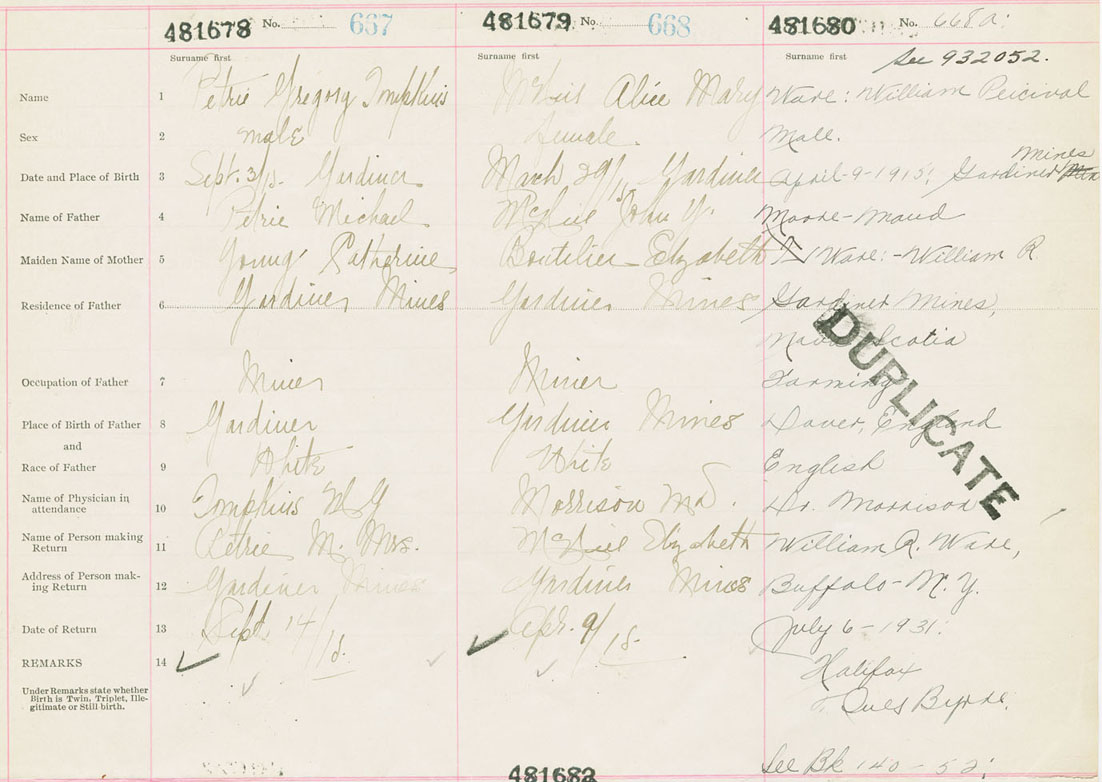 481678 No. 667 481679 No. 668 481680 No. 668a.
Surname first Surname first Surname first See 932052.
Name 1 Petrie Gregory Tompkins McNeil Alice Mary Ware: William Percival
Sex 2 male female. Male.
Date and Place of Birth 3 Sept. 3/15. Gardiner March 29/15 Gardiner April-9-1915; Gardiner Mines
Name of Father 4 Petrie Michael McNeil John Y. Moore-Maud
Maiden Name of Mother 5 Young Catherine Boutilier Elizabeth Ware:-William R.
Residence of Father 6 Gardiner Mines Gardiner Mines Gardiner Mines,
Nova Scotia
Occupation of Father 7 Miner Miner Farming
Place of Birth of Father 8 Gardiner Gardiner Mines Dover, England
and
Race of Father 9 White White English
Name of Physician in
attendance 10 Tompkins M G Morrison M D. Dr. Morrison
Name of Person making
Return 11 Petrie M. Mrs. McNeil Elizabeth William R. Ware,
Address of Person mak-
ing Return 12 Gardiner Mines Gardiner Mines Buffalo-N.Y.
Date of Return 13 Sept. 14/15. Apr. 9/15. July 6-1931.
REMARKS 14 Halifax
Under Remarks state whether
Birth is Twin, Triplet, Ille-
gitimate or Still birth.
Byrne.
DUPLICATE
See Bk 140-52.
481682